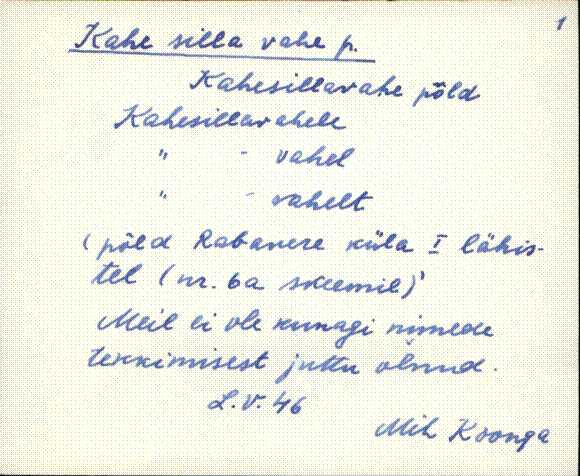 1
Kahe silla vahe p.
Kahesillavahe põld
Kahesillavahele
" - vahel
" - vahelt
( põld Rabavere küla I lähis-
tel (nr. 6a skeemil)
Meil ei ole kunagi nimede
tekkimisest juttu olnud.
L.V. 46
Mih Koonga